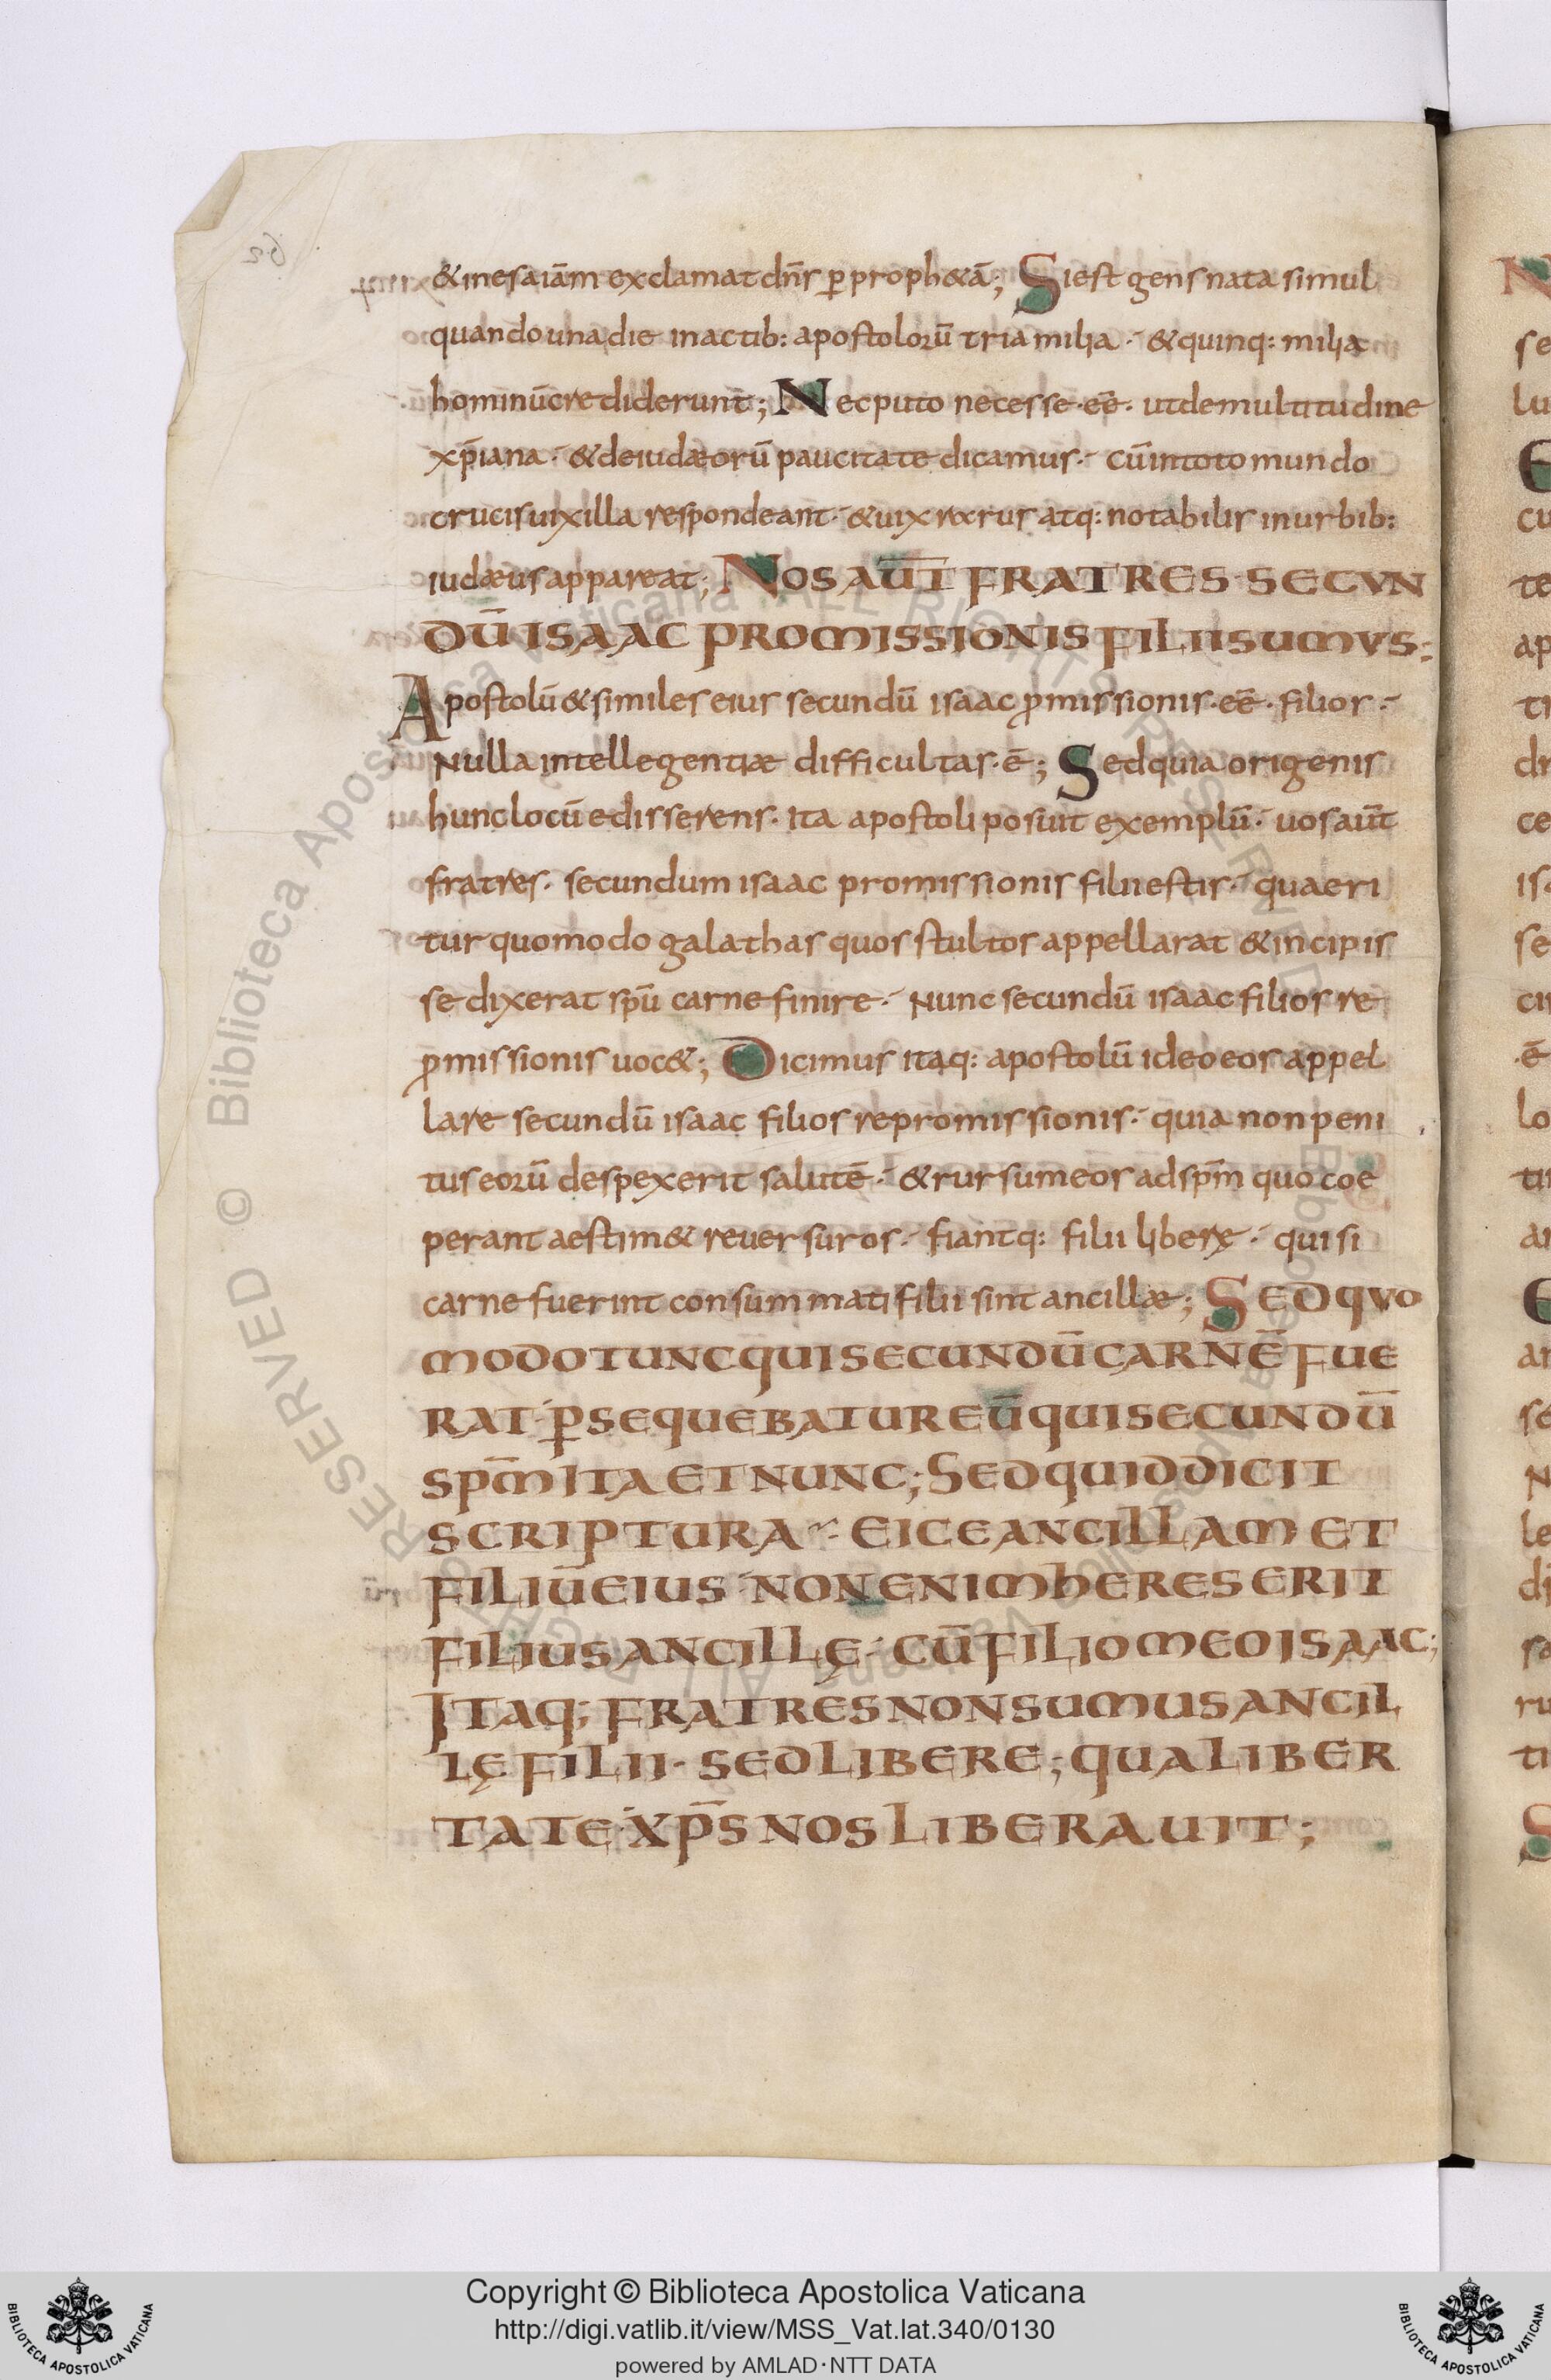 & in esaiām exclamat dn̄s ꝑ proph&ā; Si est gens nata simul
quando una die in actib: apostolorū tria milia · & quinq: milia
hominū crediderunt; Nec puto necesse · eē · ut de multitudine
xp̄iana · & de iudæorū paucitate dicamus · cū in toto mundo
crucis uixilla respondeant · & uix rarus atq: notabilis in urbib:
iudæus appareat; NOS AUT̄ FRATRES · SECVN
DŪ ISAAC PROMISSIONIS FILII SUMVS;
Apostolū & similes eius secundū isaac ꝓmissionis · eē · filios ·
Nulla intellegentiæ difficultas · ē; Sed quia origenis
hunc locū edisserens · ita apostoli posuit exemplū · uos aut̄
fratres · secundum isaac promissionis filii estis · quaeri
tur quomodo galathas quos stultos appellarat & incipis
se dixerat sp̄u carne finire · Nunc secundū isaac filios re
ꝓmissionis uoc&; Dicimus itaq: apostolū ideo eos appel
lare secundū isaac filios repromissionis · quia non peni
tus eorū despexerit salutē · & rursum eos ad sp̄m quo coe
perant aestim& reuersuros · fiantq: filii liberę · qui si
carne fuerint consummati filii sint ancillæ; SED QVO
MODO TUNC QUI SECUNDŪ CARNĒ FUE
RAT · ꝑSEQUEBATUR EŪ QUI SECUNDŪ
SP̄M ITA ET NUNC; SED QUID DICIT
SCRIPTURA · EICE ANCILLAM ET
FILIŪ EIUS · NON ENIM HERES ERIT
FILIUS ANCILLĘ · CŪ FILIO MEO ISAAC;
ITAQ; FRATRES NON SUMUS ANCIL
LĘ FILII · SED LIBERE; QUA LIBER
TATE · XP̄S NOS LIBERAUIT;
© Biblioteca Apostolica Vaticana ALL RIGHTS RESERVED
Copyright © Biblioteca Apostolica Vaticana
http://digi.vatlib.it/view/MSS_Vat.lat.340/0130
powered by AMLAD·NTT DATA
BIBLIOTECA APOSTOLICA VATICANA
BIBLIOTECA APOSTOLICA VATICANA